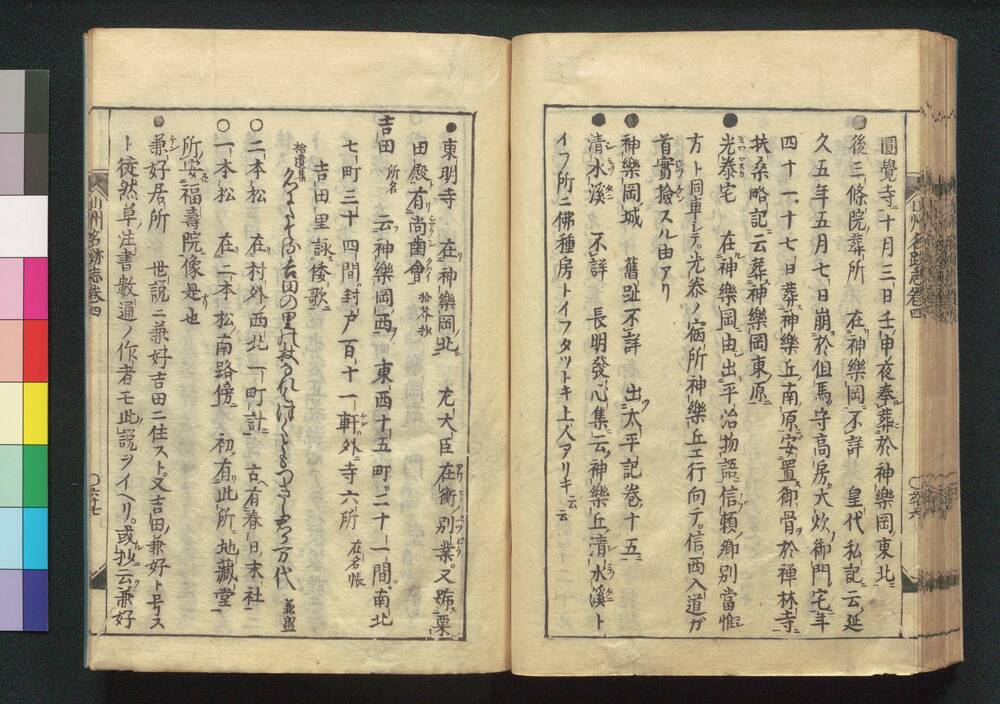 圓覺寺十月三日壬申夜奉葬於神樂岡東北
●後三條院葬所 在神樂岡不詳 皇代私記云延
久五年五月七日崩於但馬守高房大炊御門宅年
四十一十七日葬神樂丘南原安置御骨於禅林寺
扶桑略記云葬神樂岡東原
●光泰宅 在神樂岡由出平治物語信賴卿別當惟
方ト同車シテ光泰ノ宿所神樂丘エ行向テ信西入道ガ
首實撿スル由アリ
●神樂岡城 舊趾不詳 出太平記卷十五
●清水溪 不詳 長明發心集云神樂丘清水溪ト
イフ所ニ佛種房トイフタツトキ上人アリキ云云
山州名跡志卷四
○六十六
●東明寺 在神樂岡北 左大臣在衡別業又號粟
田殿有尚齒會 拾芥抄
吉田 所名 云神樂岡西 東西十五町二十一間南北
七町三十四間封戸百十一軒外寺六所 在名帳
吉田里詠倭歌
拾遺集
吉田の里の杖
万代 兼盛
○二本松 在村外西北一町計 古有春日末社
○一本松 在二本松南路傍 初有此所地藏堂
所安福壽院像是也
●兼好居所 世說ニ兼好吉田ニ住スト又吉田兼好ト号ス
ト徒然草注書數通ノ作者モ此說ヲイヘリ或抄云兼好
山州名跡志卷四
○六十七